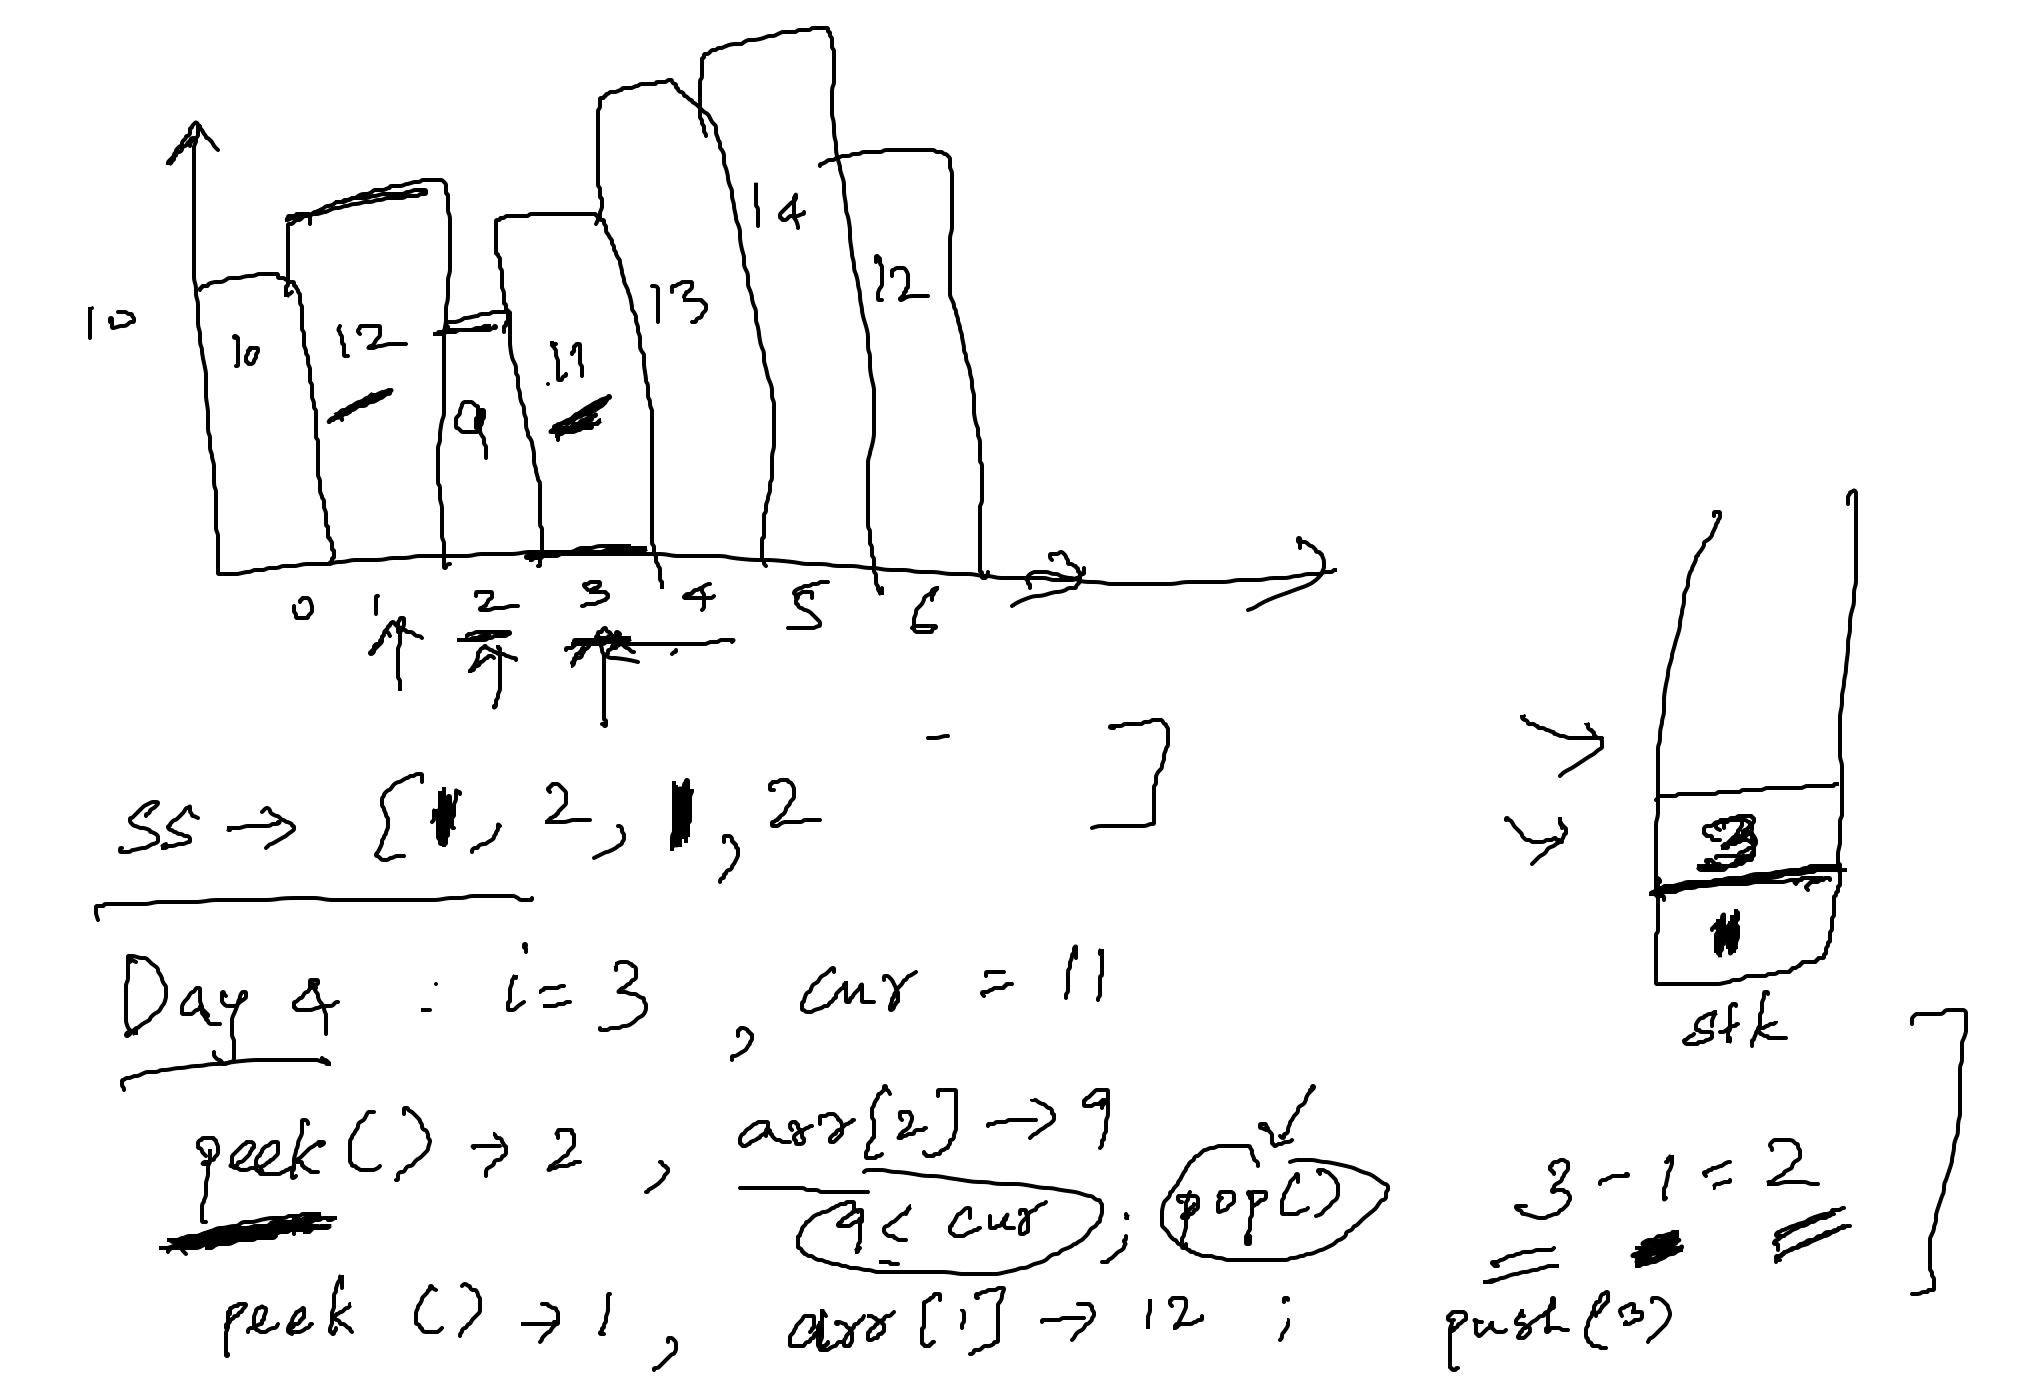 14
12
13
10
12
10
11
9
0 1 2 3 4 5 6
ss → [1, 2, 1, 2 - ]
3
1
stk
Day 4 : i = 3 , cur = 11
peek() → 2 , arr[2] → 9
9 < cur ; pop() 3 - 1 = 2
peek () → 1 , arr[1] → 12 ; push(3)